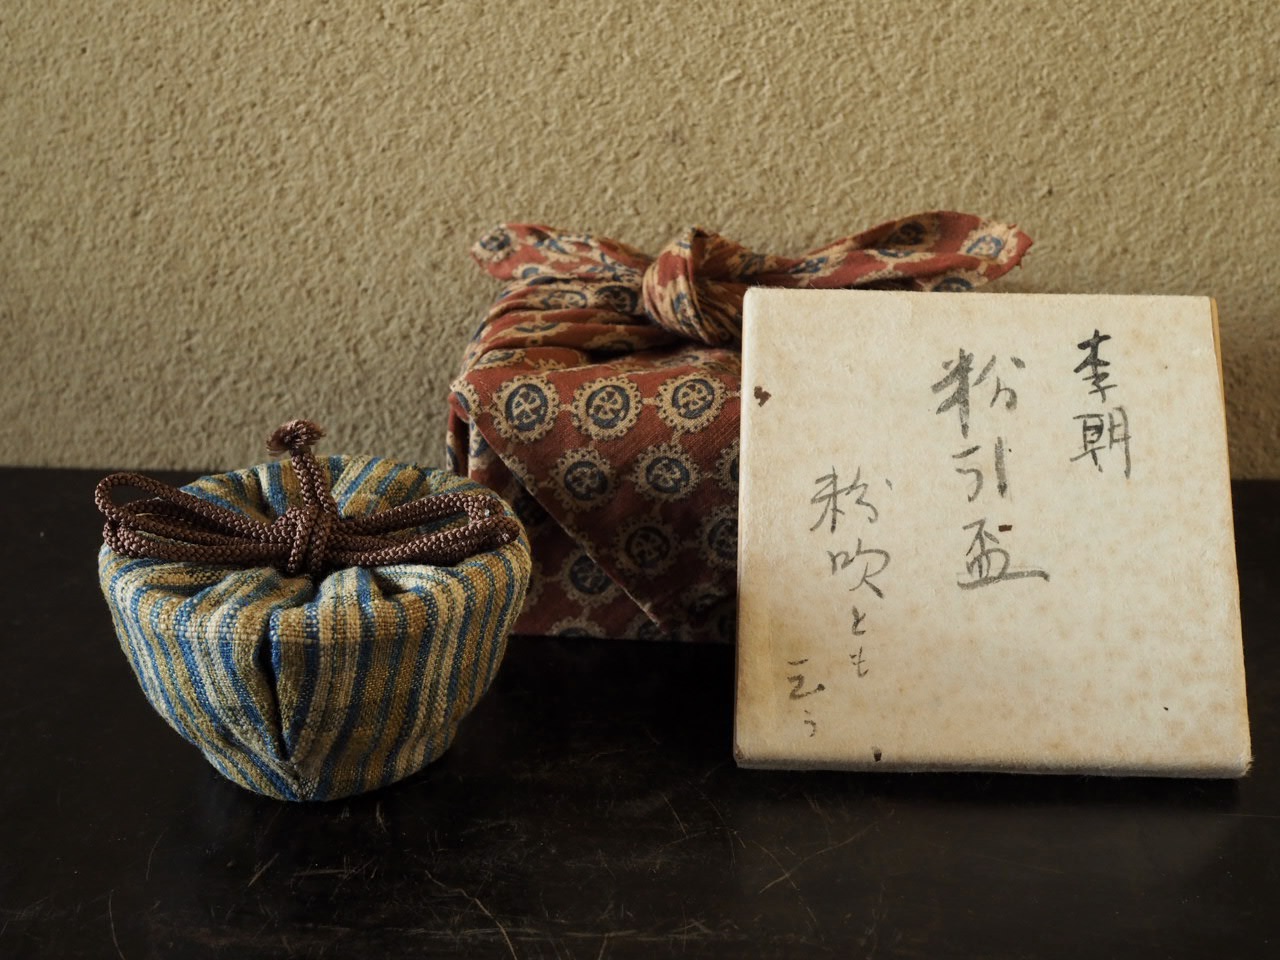 李朝
粉引盃
粉吹とも
云う